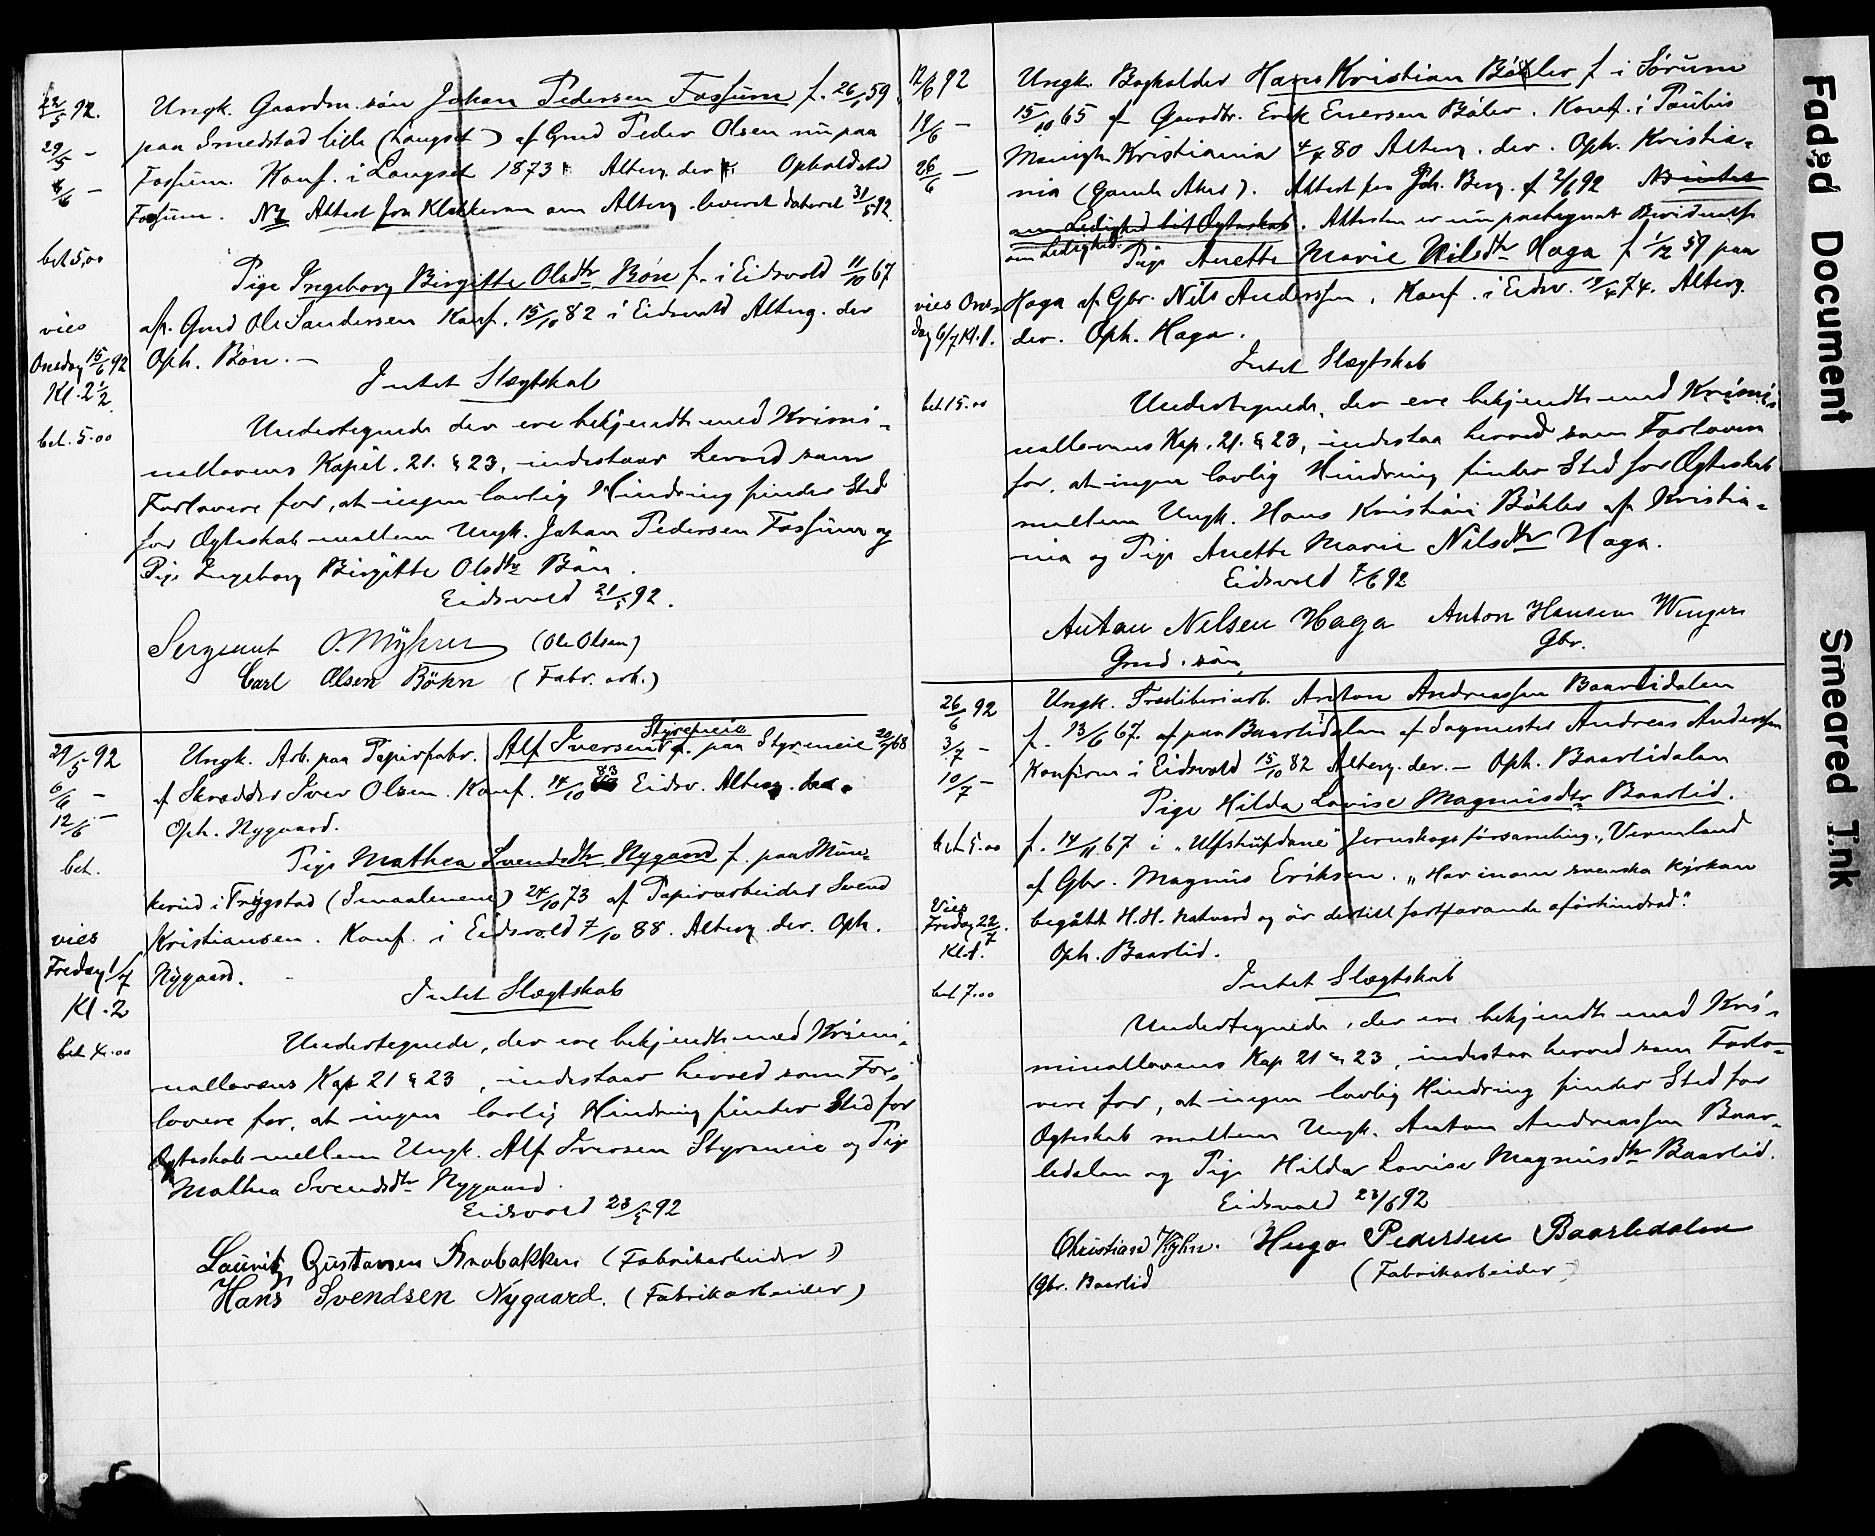 22/5 92.
29/5 –
6/6 –
bet. 5,00
vies
Onsdag 15/6 92
Kl. 2 1/2
bet. 5.00
Ungk. Gaardm. søn Johan Pedersen Fossum f. 26/1 59
paa Smedstad lille (Langset) af Gmd Peder Olsen nu paa
Fossum. Konf. i Langset 1873. Alterg. der. Opholdsted
Fossum. NB Attest fra Klokkeren om Alterg. leveret dateret 31/5 92
Pige Ingeborg Birgitte Olsdtr Bøn f. i Eidsvold 11/10 67
af Gmd Ole Sandersen Konf. 15/10 82 i Eidsvold Alterg. der
Oph. Bøn. –
Intet Slægtskab
Undertegnede der ere bekjendte med Krimi-
nallovens Kapit. 21. § 23, indestaar herved som
Forlovere for, at ingen lovlig Hindring finder Sted
for Ægteskab mellem Ungk. Johan Pedersen Fossum og
Pige Ingeborg Birgitte Olsdtr Bøn.
Eidsvold 21/5 92.
Sergeant O. Myhrer (Ole Olsen)
Carl Olsen Bøhn (Fabr. arb.)
29/5 92
6/6 –
12/6 –
bet.
vies
Fredag 1/7
Kl. 2
bet 4.00
Styremeie
Ungk. Arb. paa Papirfabr. Alf Iversen f. paa Styremeie 20/2 68
af Skrædder Iver Olsen. Konf. 14/10 83 Eidsv. Alterg. der.
Oph. Nygaard.
Pige Mathea Svendsdtr Nygaard f. paa Mun-
kerud i Trøgstad (Smaalenene) 24/10 73 af Papirarbeider Svend
Kristiansen. Konf. i Eidsvold 7/10 88. Alterg. der. Oph.
Nygaard.
Intet Slægtskab
Undertegnede, der ere bekjendte med Krimi-
nallovens Kap 21 § 23, indestaar herved som For-
lovere for, at ingen lovlig Hindring finder Sted for
Ægteskab mellem Ungk. Alf Iversen Styremeie og Pige
Mathea Svendsdtr Nygaard.
Eidsvold 23/5 92
Lauritz Gustavsen (Fabrikarbeider)
Hans Svendsen Nygaard. (Fabrikarbeider)
12/6 92
19/6 –
26/6 –
vies Ons-
dag 6/7 Kl. 1.
bet 15.00
Ungk. Bogholder Hans Kristian Bøhler f i Sørum
15/10 65 af Gaardbr. Erik Evensen Bøler. Konf. i Paulus
Menigh. Kristiania 4/4 80 Alterg. der. Oph. Kristia-
nia (Gamle Aker). Attest fra Joh. Berg. af 2/6 92 NB intet
om Ledighed til Ægteskab. Attesten er nu paategnet Bevidnelse
om Ledighed.
Pige Anette Marie Nilsdtr Haga f 1/12 59 paa
Haga af Gbr. Nils Anderssen. Konf. i Eidsv. 19/4 74. Alterg.
der. Oph. Haga.
Intet Slægtskab
Undertegnede, der ere bekjendte med Krimi-
nallovens Kap. 21. § 23, indestaa herved som Forlovere
for, at ingen lovlig Hindring finder Sted for Ægteskab
mellem Ungk. Hans Kristian Bøhler af Kristia-
nia og Pige Anette Marie Nilsdtr Haga.
Eidsvold 7/6 92
Anton Nilsen Haga Anton Hansen Wenger
Gmd. søn Gbr.
26/6 92
3/7 –
10/7 –
bet 5.00
Vies
Fredag 22/7.
Kl. 1.
bet 7.00
Ungk. Træsliberiarb. Anton Andreassen Baarlidalen
f. 13/6 67. af paa Baarlidalen af Sagmester Andreas Anderssen
Konfirm i Eidsvold 15/10 82 Alterg. der. – Oph. Baarlidalen
Pige Hilda Lovise Magnusdtr Baarlid.
f. 14/11 67 i „Ulfstupdane" Jernskogs församling, Vermland
af Gbr. Magnus Eriksen. „Har inom svenska kyrkan
begått H.H. Nattvard og är dertill fortfarande oförhindrad."
Oph. Baarlid.
Intet Slægtskab
Undertegnede, der ere bekjendte med Kri-
minallovens Kap 21 § 23, indestaa herved som Forlo-
vere for, at ingen lovlig Hindring finder Sted for
Ægteskab mellem Ungk. Anton Andreassen Baar-
lidalen og Pige Hilda Lovise Magnusdtr Baarlid.
Eidsvold 23/6 92
Christian Hyhn. Hugo Pedersen Baarlidalen
(Gbr. Baarlid (Fabrikarbeider)
Faded Document
Smeared Ink